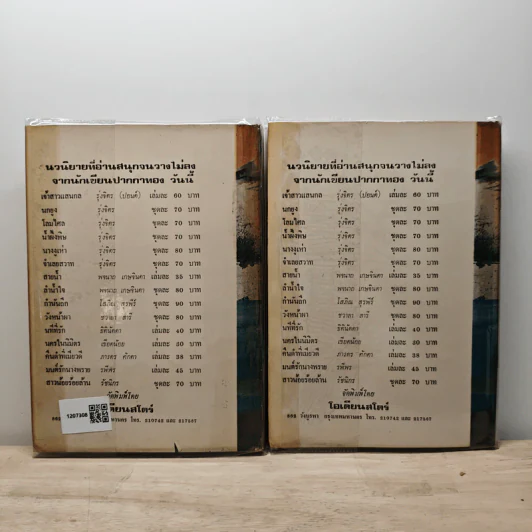 นวนิยายที่อ่านสนุกจนวางไม่ลง
จากนักเขียนปากกาทอง วันนี้
เจ้าสาวแสนกล รุ่งจิตร (ปอนด์) เล่มละ 60 บาท
นกยูง รุ่งจิตร ชุดละ 70 บาท
โลมไศล รุ่งจิตร ชุดละ 70 บาท
น้ำผึ้งพิษ รุ่งจิตร ชุดละ 70 บาท
นางงูเห่า รุ่งจิตร ชุดละ 80 บาท
จำเลยสวาท รุ่งจิตร ชุดละ 70 บาท
สายน้ำ พจนาถ เกษจินดา เล่มละ 35 บาท
ลำน้ำใจ พจนาถ เกษจินดา ชุดละ 80 บาท
กำนันอึก โสภิณ สุรพีร์ ชุดละ 90 บาท
วังหน้าผา ชุดละ 80 บาท
นที่ที่รัก เล่มละ 40 บาท
นครในนิมิตร เรียมน้อย เล่มละ 30 บาท
คืนค่ำที่เมียวดี ภราดร ศักดา เล่มละ 38 บาท
มนต์รักนางทราย รพีพร เล่มละ 45 บาท
สาวน้อยร้อยล้าน รัชนิกร ชุดละ 70 บาท
จัดพิมพ์โดย
โอเดียนสโตร์
1207308
นวนิยายที่อ่านสนุกจนวางไม่ลง
จากนักเขียนปากกาทอง วันนี้
เจ้าสาวแสนกล รุ่งจิตร (ปอนด์) เล่มละ 60 บาท
นกยูง รุ่งจิตร ชุดละ 70 บาท
โลมไศล รุ่งจิตร ชุดละ 70 บาท
น้ำผึ้งพิษ รุ่งจิตร ชุดละ 70 บาท
นางงูเห่า รุ่งจิตร ชุดละ 80 บาท
จำเลยสวาท รุ่งจิตร ชุดละ 70 บาท
สายน้ำ พจนาถ เกษจินดา เล่มละ 35 บาท
ลำน้ำใจ พจนาถ เกษจินดา ชุดละ 80 บาท
กำนันอึก โสภิณ สุรพีร์ ชุดละ 90 บาท
วังหน้าผา ชุดละ 80 บาท
นที่ที่รัก เล่มละ 40 บาท
นครในนิมิตร เรียมน้อย เล่มละ 30 บาท
คืนค่ำที่เมียวดี ภราดร ศักดา เล่มละ 38 บาท
มนต์รักนางทราย รพีพร เล่มละ 45 บาท
สาวน้อยร้อยล้าน รัชนิกร ชุดละ 70 บาท
จัดพิมพ์โดย
โอเดียนสโตร์
วังบูรพา กรุงเทพมหานคร โทร.